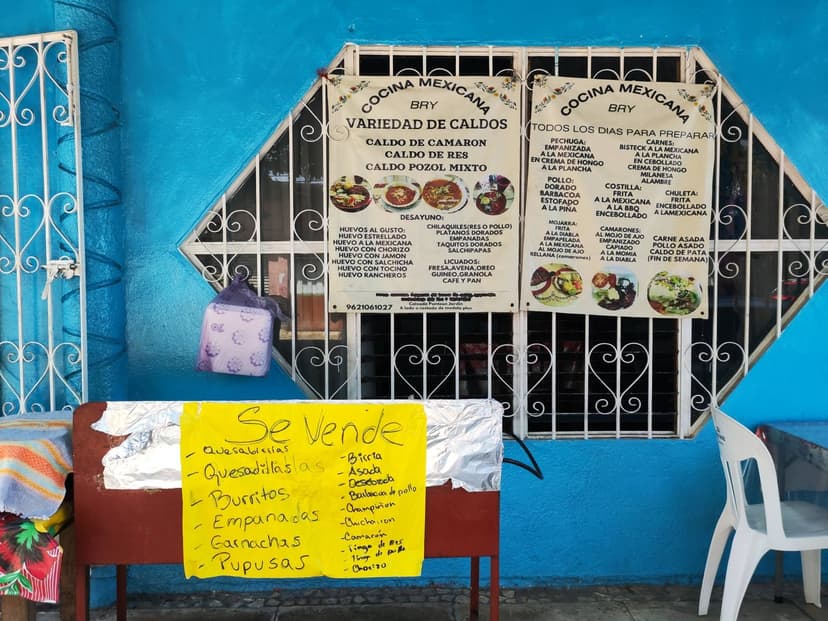 COCINA MEXICANA
BRY
VARIEDAD DE CALDOS
CALDO DE CAMARON
CALDO DE RES
CALDO POZOL MIXTO
DESAYUNO:
HUEVOS AL GUSTO:
HUEVO ESTRELLADO
HUEVO A LA MEXICANA
HUEVO CON CHORIZO
HUEVO CON JAMON
HUEVO CON SALCHICHA
HUEVO CON TOCINO
HUEVO RANCHEROS
CHILAQUILES(RES O POLLO)
PLATANOS DORADOS
EMPANADAS
TAQUITOS DORADOS
SALCHIPAPAS
LICUADOS:
FRESA,AVENA,OREO
GUINEO,GRANOLA
CAFE Y PAN
Calzada Panteon Jardin
9621061027
COCINA MEXICANA
BRY
TODOS LOS DIAS PARA PREPARAR
PECHUGA:
EMPANIZADA
A LA MEXICANA
EN CREMA DE HONGO
A LA PLANCHA
POLLO:
DORADO
BARBACOA
ESTOFADO
A LA PIÑA
MOJARRA:
FRITA
A LA DIABLA
EMPAPELADA
A LA MEXICANA
AL MOJO DE AJO
RELLANA (camarones)
CARNES:
BISTECK A LA MEXICANA
A LA PLANCHA
EN CEBOLLADO
CREMA DE HONGO
MILANESA
ALAMBRE
COSTILLA:
FRITA
A LA MEXICANA
A LA BBQ
ENCEBOLLADO
CAMARONES:
AL MOJO DE AJO
EMPANIZADO
CAPIADO
A LA MOMIA
A LA DIABLA
CHULETA:
FRITA
ENCEBOLLADO
A LAMEXICANA
CARNE ASADA
POLLO ASADO
CALDO DE PATA
(FIN DE SEMANA)
Se Vende
- Quesabirrias
- Quesadillas
- Burritos
- Empanadas
- Garnachas
- Pupusas
- Birria
- Asada
- Desebrada
- Barbacoa de pollo
- Champiñon
- Chicharron
- Camarón
- Tinga de Res
- Tinga de pollo
- Chorizo